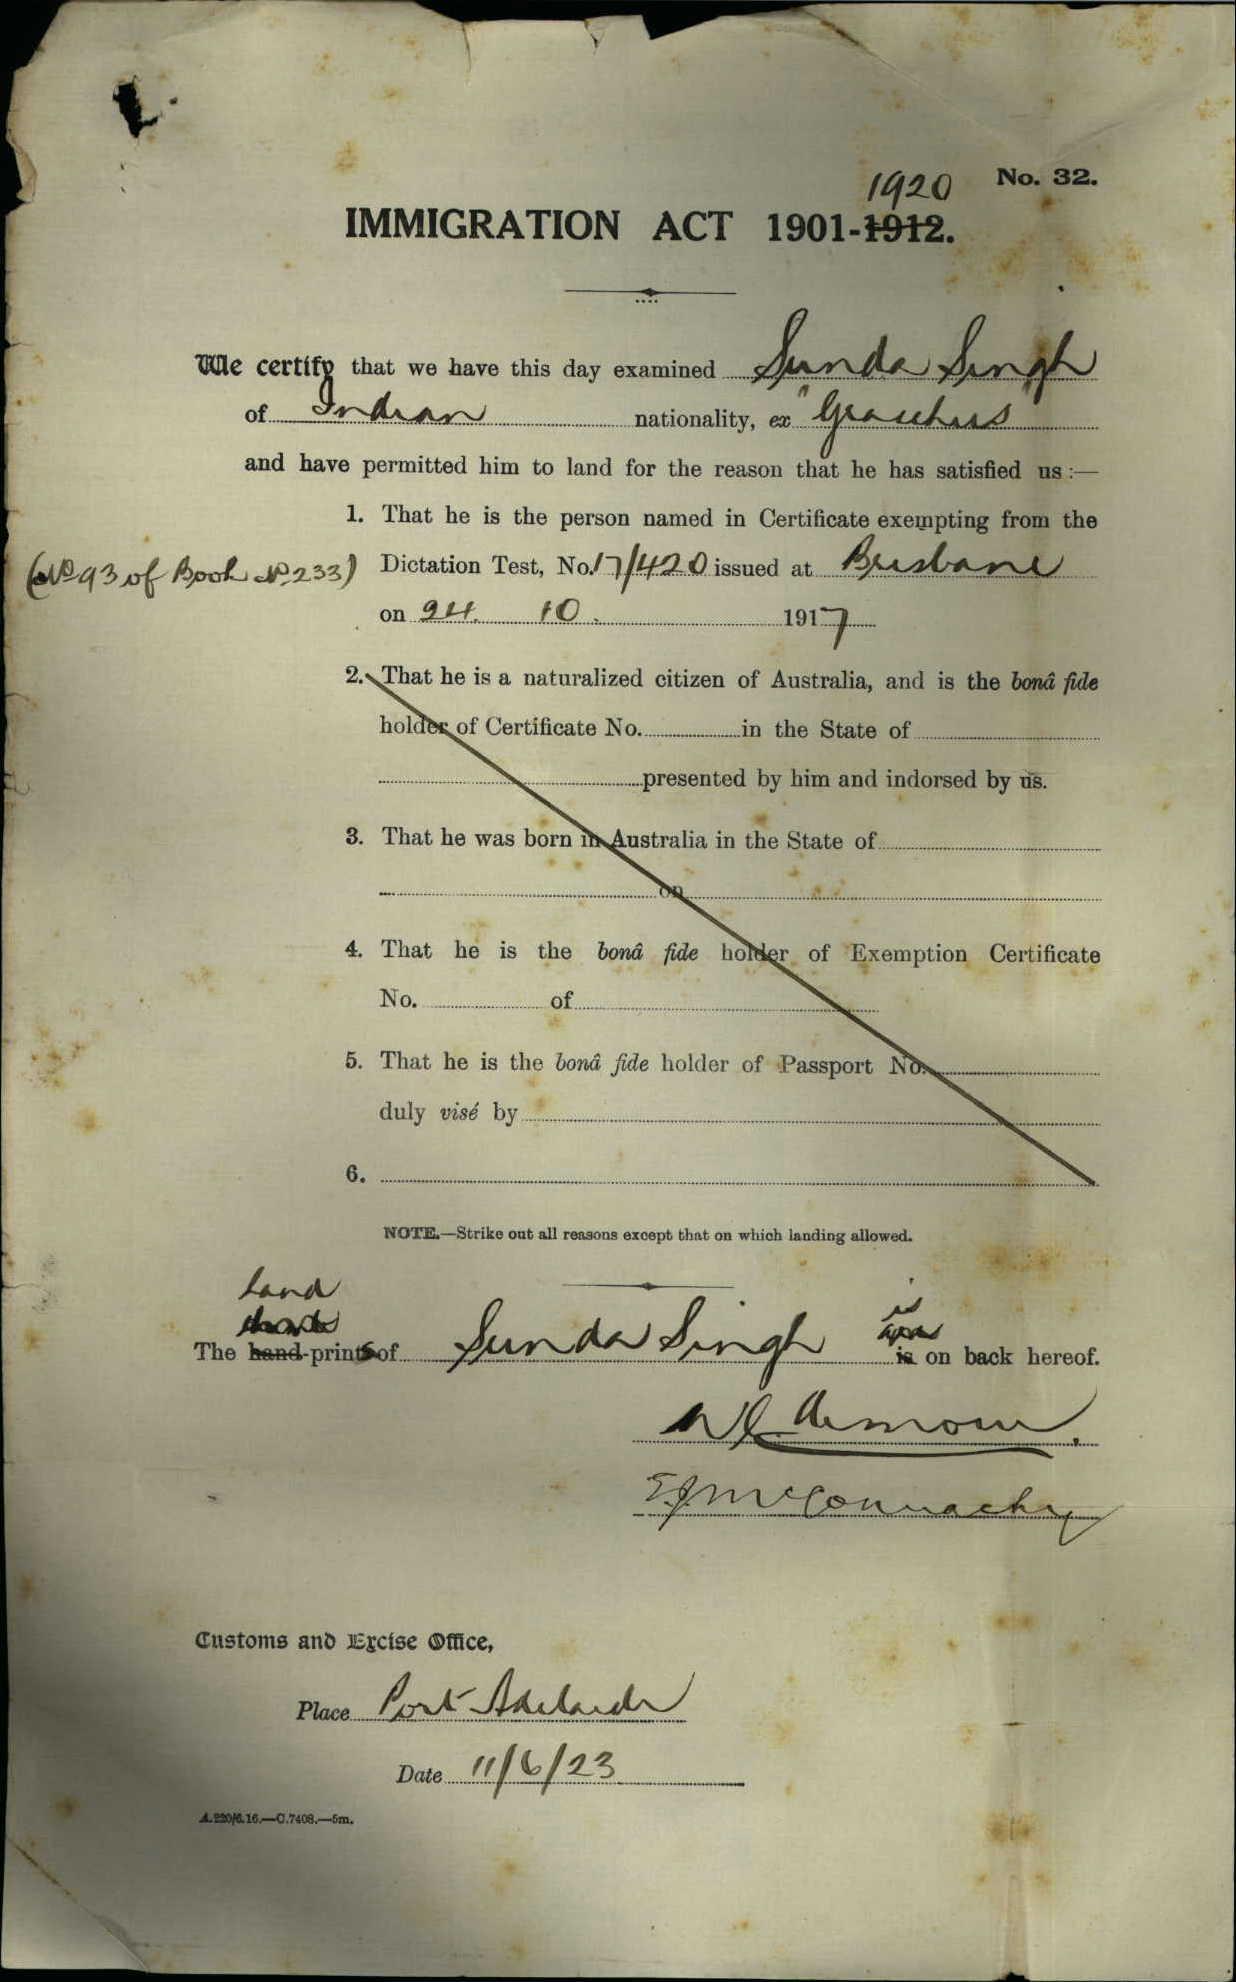 1920 No. 32.
IMMIGRATION ACT 1901-1912.
We certify that we have this day examined Sunda Singh
of Indian nationality, ex "Gracchus"
and have permitted him to land for the reason that he has satisfied us :—
1. That he is the person named in Certificate exempting from the
(No 93 of Book No. 233) Dictation Test, No. 17/420 issued at Brisbane
on 24. 10. 1917
2. That he is a naturalized citizen of Australia, and is the bonâ fide
holder of Certificate No. in the State of
presented by him and indorsed by us.
3. That he was born in Australia in the State of
on
4. That he is the bonâ fide holder of Exemption Certificate
No. of
5. That he is the bonâ fide holder of Passport No.
duly visé by
6.
NOTE.—Strike out all reasons except that on which landing allowed.
hand
is
The hand-prints of Sunda Singh is on back hereof.
E.J. McConnachy
Customs and Excise Office,
Place Port Adelaide
Date 11/6/23
A.220/6.16.—C.7408.—5m.